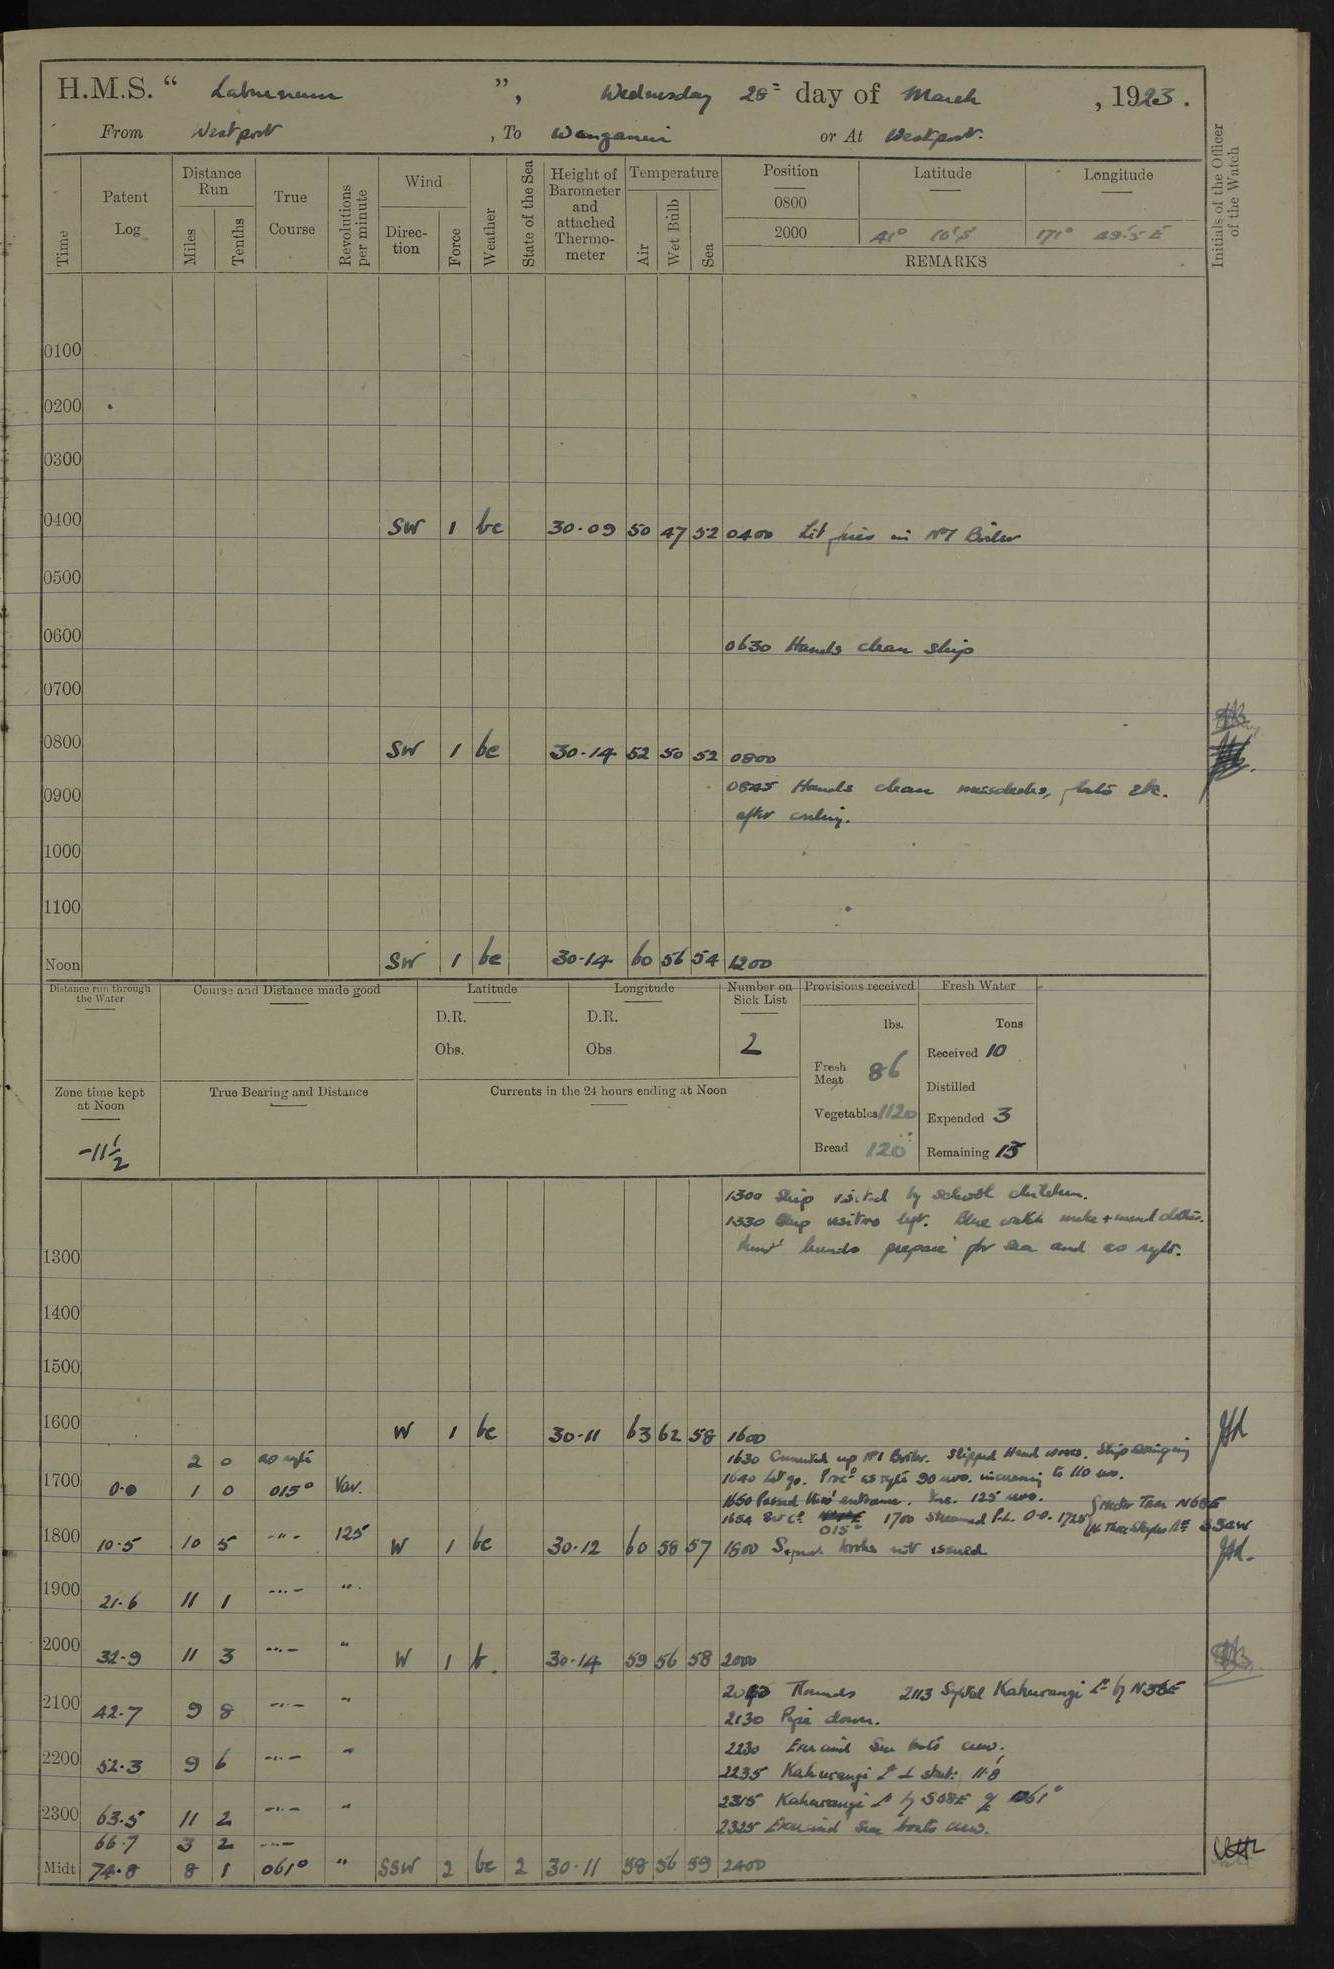 H.M.S. “ Laburnum ”, Wednesday 28th day of March, 1923.
From Westport, To Wanganui or At Westport.
Time
Patent Log
Distance Run
Miles
Tenths
True Course
Revolutions per minute
Wind
Direction
Force
Weather
State of the Sea
Height of Barometer and attached Thermometer
Temperature
Air
Wet Bulb
Sea
Position
Latitude
Longitude
0800
2000 41° 10'·5 171° 49'·5 E
REMARKS
Initials of the Officer of the Watch
0100
0200
0300
0400 SW 1 bc 30·09 50 47 52 0400 Lit fires in No 1 Boiler
0500
0600 0630 Hands clean ship
0700
0800 SW 1 bc 30·14 52 50 52 0800
0900 0845 Hands clean messdecks, flats etc.
after coaling.
1000
1100
Noon SW 1 bc 30·14 60 56 54 1200
Distance run through the Water
Course and Distance made good
Latitude
D.R.
Obs.
Longitude
D.R.
Obs.
Number on Sick List
2
Provisions received
lbs.
Fresh Meat 86
Vegetables 1120
Bread 120
Fresh Water
Tons
Received 10
Distilled
Expended 3
Remaining 15
Zone time kept at Noon
-11 1/2
True Bearing and Distance
Currents in the 24 hours ending at Noon
1300 Ship visited by school children.
1330 Ship visitors left. Blue watch make + mend clothes.
hands prepare for sea and as req^te.
1300
1400
1500
1600 W 1 bc 30·11 63 62 58 1600
2 0 as req^te 1630 Connected up No 1 Boiler. Slipped Head ropes. Ship swinging
1640 Let go. Proc^d as req^te 90 revs. increasing to 110 revs.
1700 0·0 1 0 015° Var. 1650 Passed thro' entrance. Inc. 125 revs.
1654 S/C 015° 1700 Streamed P.L. 0·0. 1725
1800 10·5 10 5 -"- 125 W 1 bc 30·12 60 58 57 1800 books not issued
1900 21·6 11 1 -"- "
2000 32·9 11 3 -"- " W 1 b. 30·14 59 56 58 2000
Rounds 2113 Sighted Kahurangi Lt by N38E
2100 42·7 9 8 -"- " 2130 Pipe down.
2230 Exercised Sea boats crew.
2200 52·3 9 6 -"- " 2235 Kahurangi Lt ⊥ 11·8
2315 Kahurangi Lt by S08E 061°
2300 63·5 11 2 -"- " 2325 Exercised Sea boats crew.
66·7 3 2 -"-
Midt 74·8 8 1 061° " SSW 2 bc 2 30·11 58 56 59 2400